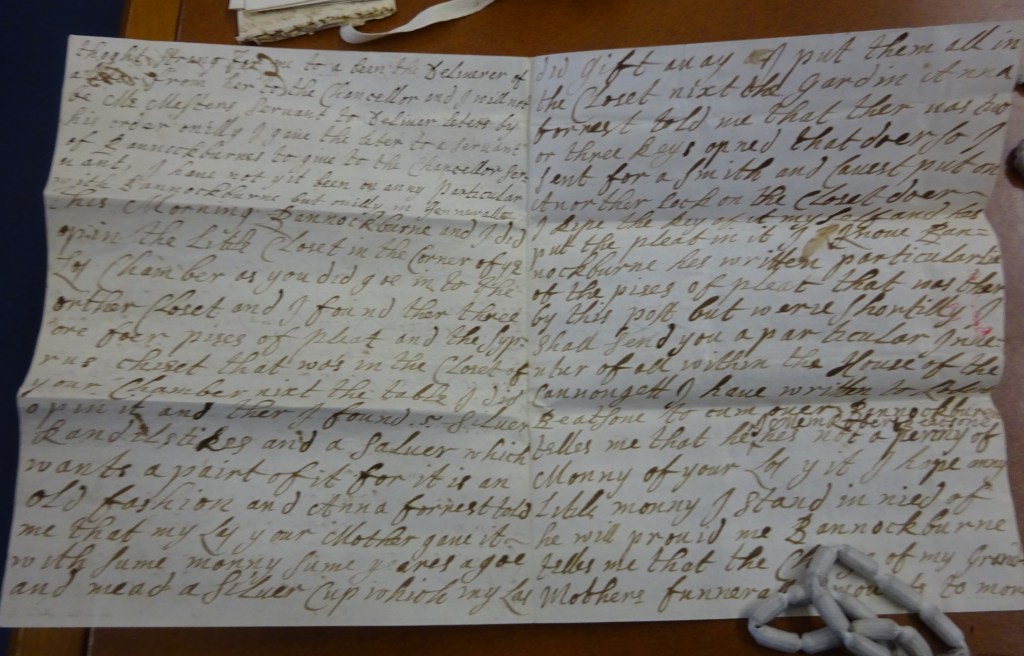 thoght strang for me to a been the Deliuerer of
from her to the Chancellor and I will not
be Mr Mesters Servant to Deliver leters by
his order onilly I gaue the leter to a servant
of Bannockburnes to giue to the Chancellor ser
uant, I have not yit been on anny particular
with Bannockburne but onilly in Jenneralls
this Morning Bannockburne and I did
opin the Litle Closet in the Corner of yr
Los Chamber as you did goe in to the
orther Closet and I found ther three
ore foer pises of pleat and the Syp
rus chisset that wos in the Closet of
your Chamber nixt the table I did
opin it and ther I found 5 Siluer
Kandilstikes and a Saluer which
wants a pairt of it for it is an
old fashion and Anna forrest told
me that my Los your Mother gaue it
with sume monny sume yeares agoe
and mead a Siluer Cup which my Los
did gift away I put them all in
the Closet nixt the Gardin Anna
forrest told me that ther was two
or three keys opned that doer so I
sent for a smith and caused put on
anorther Lock on the Closet doer
I kepe the key of it my self and has
put the pleat in it I Knoue Ban-
nockburne hes written particularlie
of the pises of pleat that was ther
by this post but werie shortilly I
shall send you a particular Inue-
ntur of all within the House of the
Cannongett I have written to
Beatsone to cum ouer Bannockburne
telles me that he hes not a penny of
Monny of your Los yit I hope any
Litle monny I stand in nied of
he will prouid me Bannockburne
telles me that the of my Grand
Mothers funnerall to mor